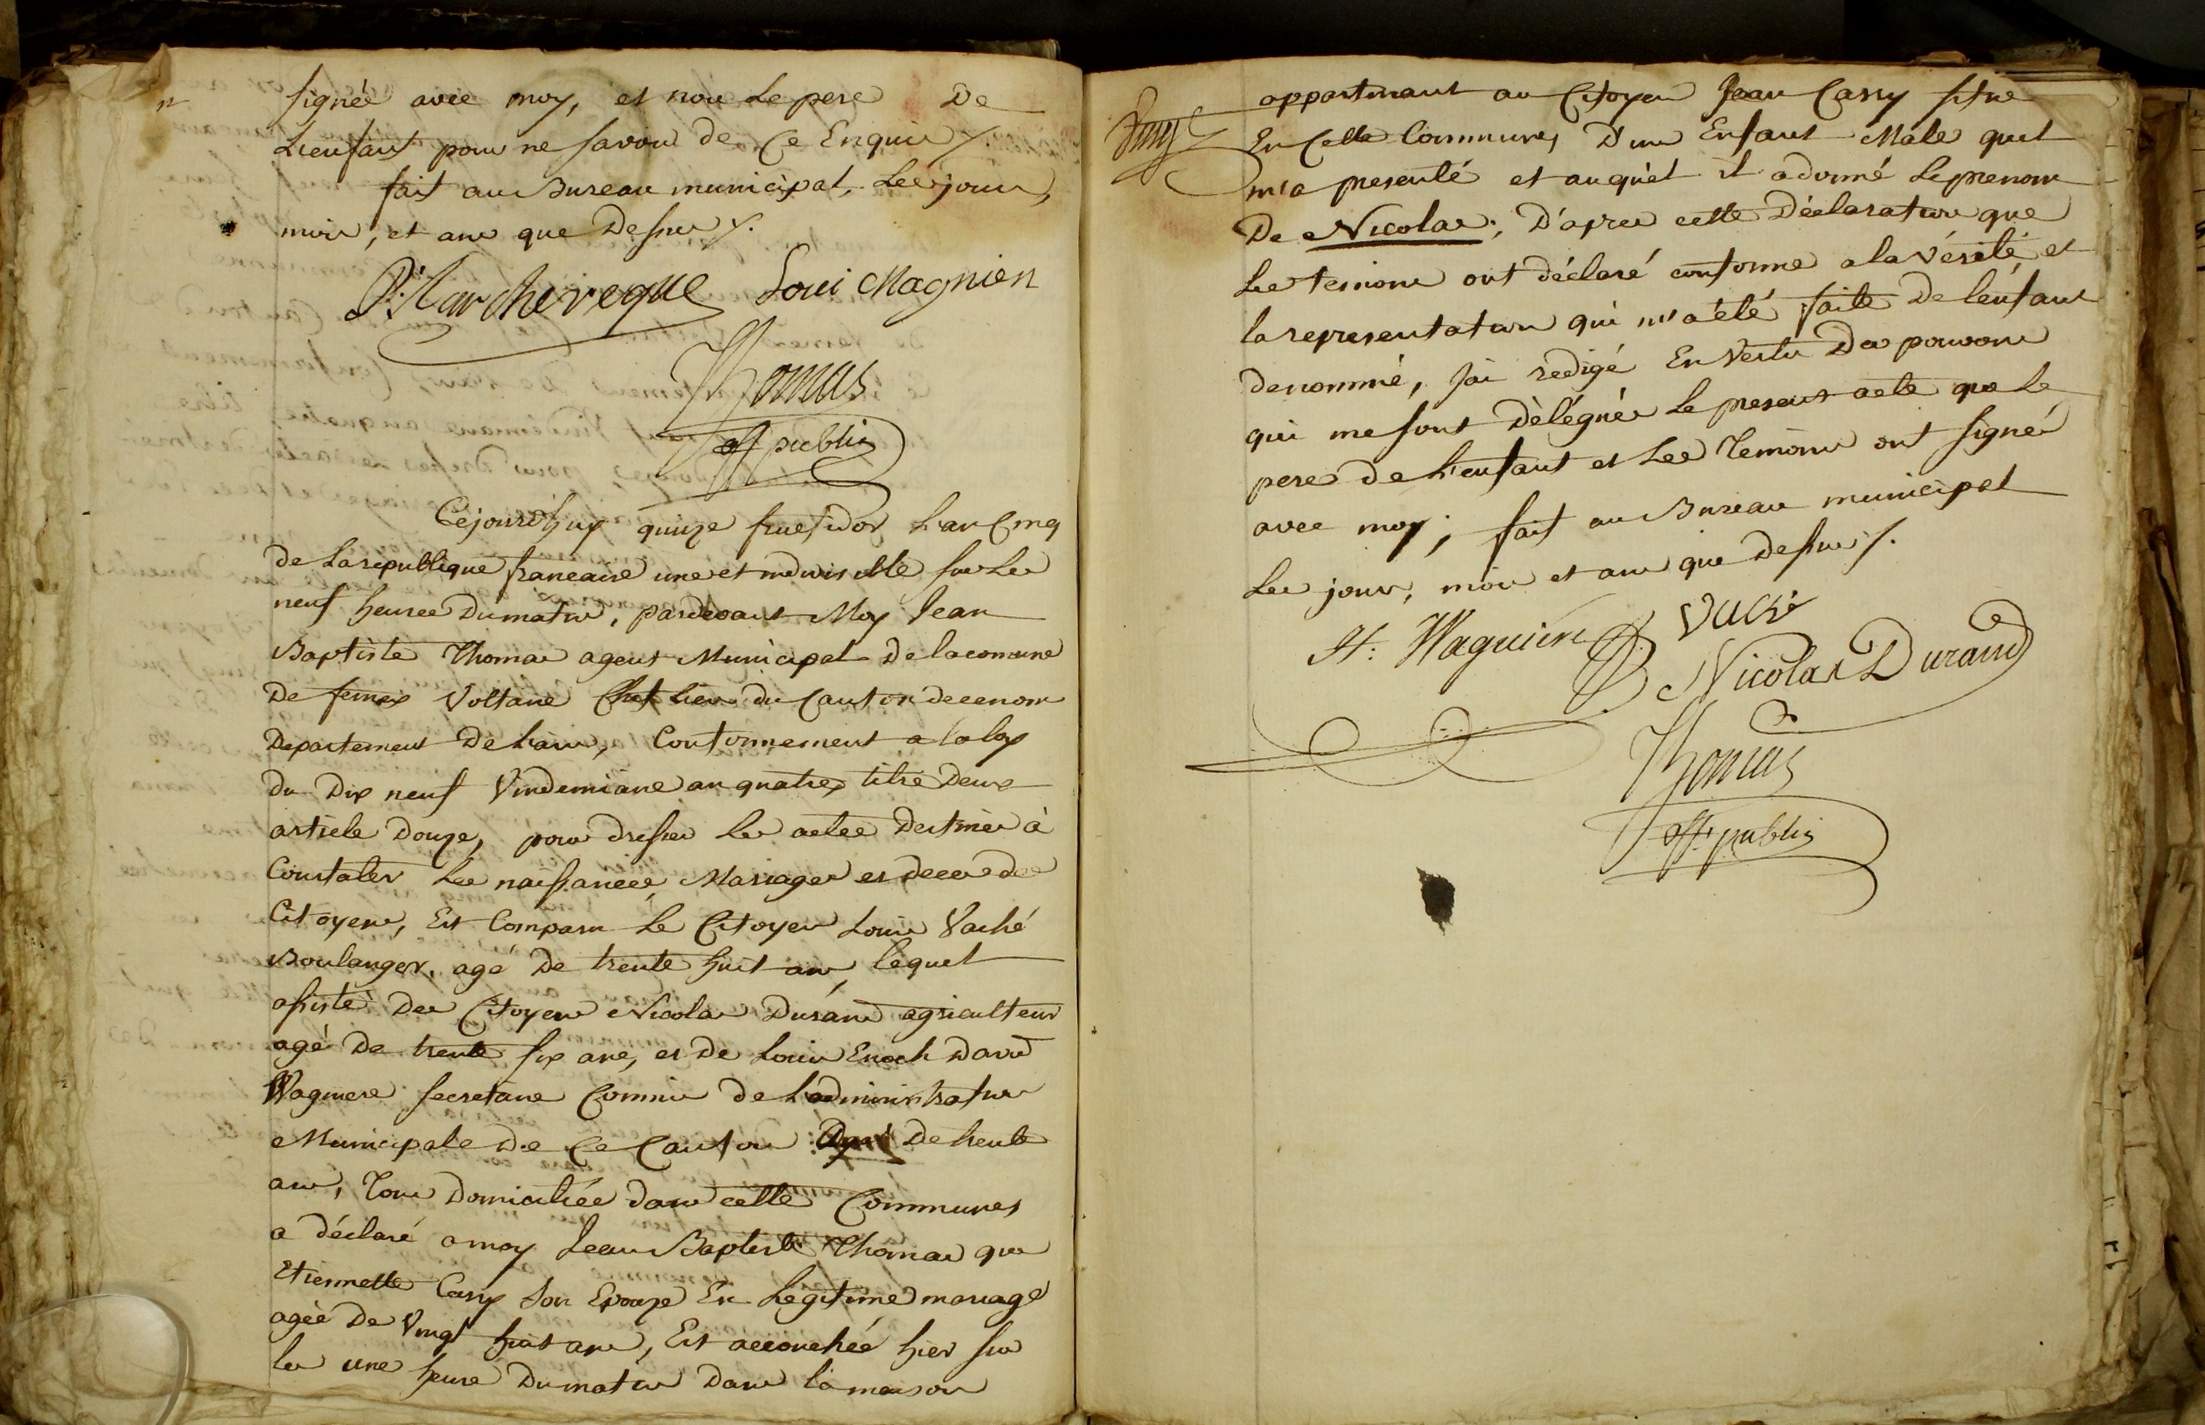 signée avec moy, et non Le pere De
L'enfant pour ne savoir de Ce Enquis ./.
fait au Bureau municipal, Les jour,
mois, et an que Dessus ./.
Louis Magnien
Thomas
off public
Cejourd'huy quinze fructidor L'an Cinq
de La république francaise une et indivisible sur Les
neuf heures Du matin, pardevant Moy Jean
Baptiste Thomas agent Municipal De la comune
De fernex Voltaire Chef Lieu du Canton de ce nom
Departement De L'ain, Conformement a la loy
du Dix neuf Vindemiaire an quatre, titre Deux
article Douze, pour dresser Les actes Destinés à
Constater Les naissances, Mariages et deces des
Citoyens, Est Comparu Le Citoyen Louis Vaché
Boulanger, agé De trente huit ans, lequel
assisté Des Citoyens Nicolas Durand agriculteur
agé De trente six ans, et De Louis Enoch David
Wagniere secretaire Commis de L'administration
Municipale De Ce Canton Agé De trente
ans, Tous Domiciliés dans cette Commune,
a déclaré a moy Jean Baptiste Thomas que
Etiennette Cary Son Epouze En Légitime mariage
agée De Vingt huit ans, Est accouchée hier sur
les une heure Du matin Dans la maison
appartenant au Citoyen Jean Cary situé
En Cette Commune, D'un Enfant Male qu'il
m'a presenté et auquel il a donné Le prenom
De Nicolas; D'apres cette Déclaration que
Les temoins ont déclaré conforme a la Vérité, et
la representation qui m'a été faite De l'enfant
denommé, j'ai redigé En Vertu Des pouvoirs
qui me sont Délégués Le present acte que Le
pere De L'enfant et Les Temoins ont signé
avec moy; fait au Bureau municipal
Les jour, mois et an que Dessus ./.
H: Wagniere Vaché
Nicolas Durand
Thomas
off. public